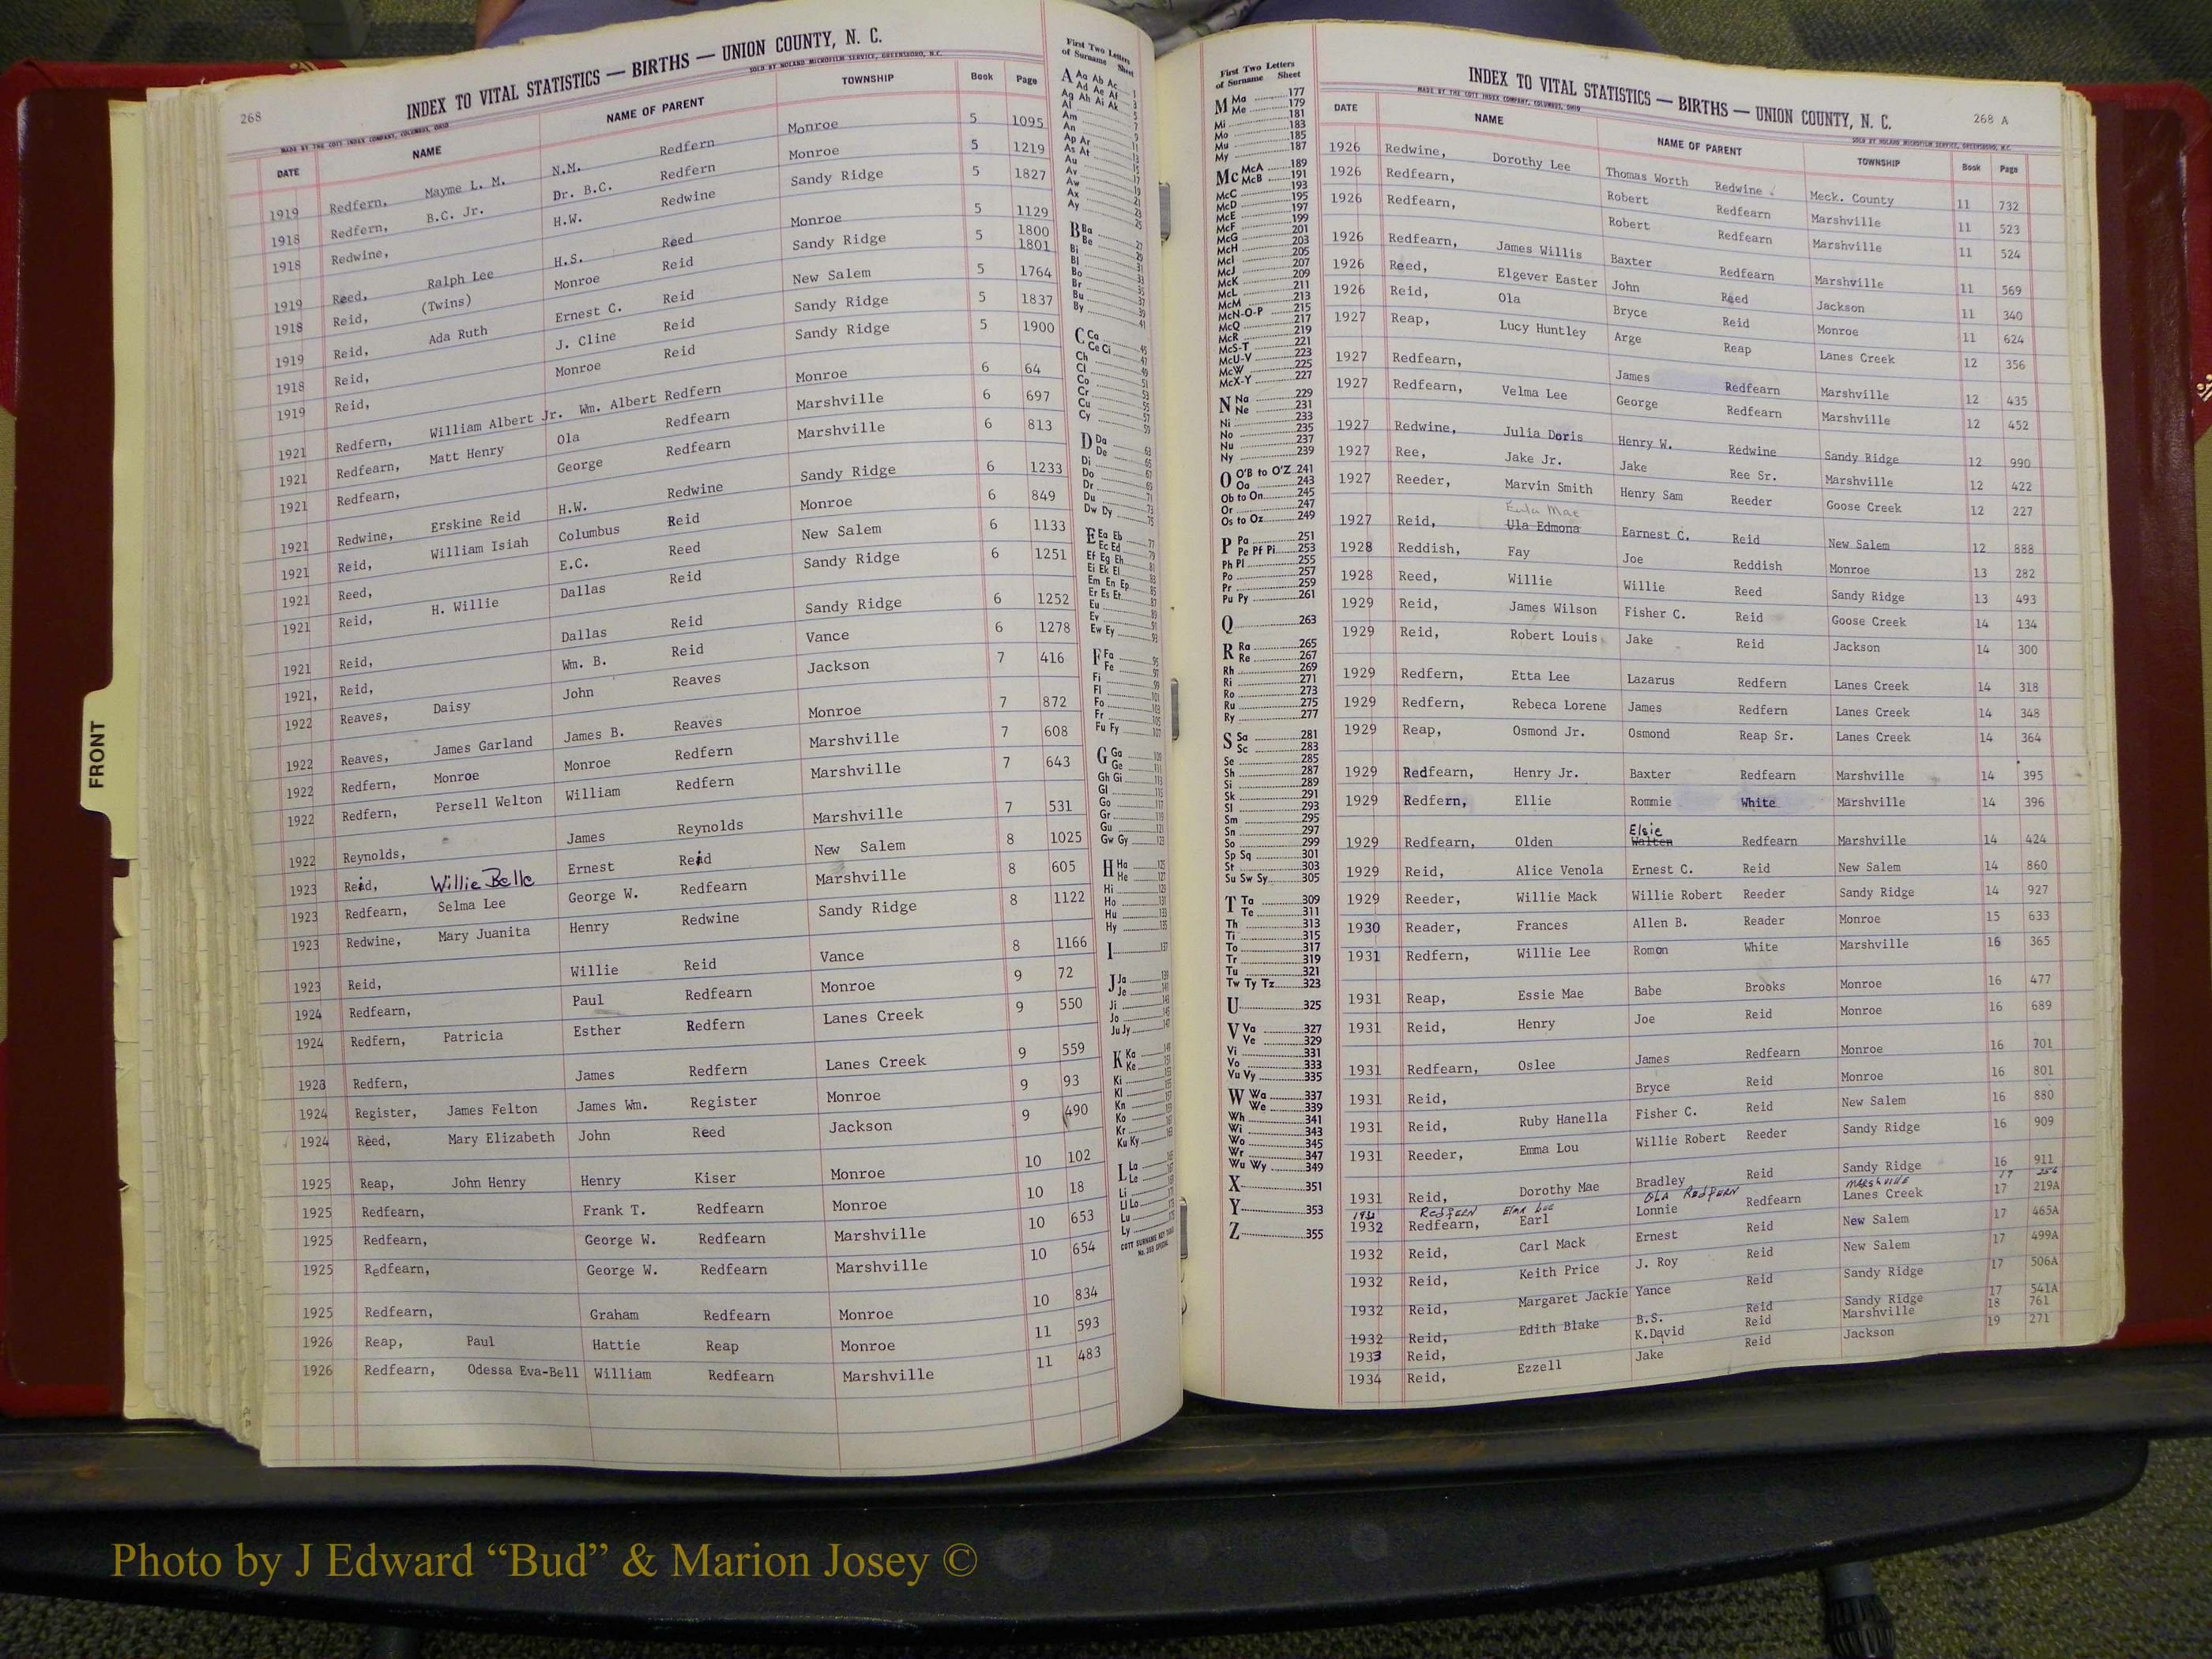 268
INDEX TO VITAL STATISTICS — BIRTHS — UNION COUNTY, N. C.
MADE BY THE COTT INDEX COMPANY, COLUMBUS, OHIO SOLD BY NOLAND MICROFILM SERVICE, GREENSBORO, N.C.
DATE NAME NAME OF PARENT TOWNSHIP Book Page
1919 Redfern, Mayme L. M. N.M. Redfern Monroe 5 1095
1918 Redfern, B.C. Jr. Dr. B.C. Redfern Monroe 5 1219
1918 Redwine, H.W. Redwine Sandy Ridge 5 1827
1919 Reed, Ralph Lee H.S. Reed Monroe 5 1129
1918 Reid, (Twins) Monroe Reid Sandy Ridge 5 1800 1801
1919 Reid, Ada Ruth Ernest C. Reid New Salem 5 1764
1918 Reid, J. Cline Reid Sandy Ridge 5 1837
1919 Reid, Monroe Reid Sandy Ridge 5 1900
1921 Redfern, William Albert Jr. Wm. Albert Redfern Monroe 6 64
1921 Redfearn, Matt Henry Ola Redfearn Marshville 6 697
1921 Redfearn, George Redfearn Marshville 6 813
1921 Redwine, Erskine Reid H.W. Redwine Sandy Ridge 6 1233
1921 Reid, William Isiah Columbus Reid Monroe 6 849
1921 Reed, E.C. Reed New Salem 6 1133
1921 Reid, H. Willie Dallas Reid Sandy Ridge 6 1251
1921 Reid, Dallas Reid Sandy Ridge 6 1252
1921, Reid, Wm. B. Reid Vance 6 1278
1922 Reaves, Daisy John Reaves Jackson 7 416
1922 Reaves, James Garland James B. Reaves Monroe 7 872
1922 Redfern, Monroe Monroe Redfern Marshville 7 608
1922 Redfern, Persell Welton William Redfern Marshville 7 643
1922 Reynolds, James Reynolds Marshville 7 531
1923 Reid, Willie Belle Ernest Reid New Salem 8 1025
1923 Redfearn, Selma Lee George W. Redfearn Marshville 8 605
1923 Redwine, Mary Juanita Henry Redwine Sandy Ridge 8 1122
1923 Reid, Willie Reid Vance 8 1166
1924 Redfearn, Paul Redfearn Monroe 9 72
1924 Redfern, Patricia Esther Redfern Lanes Creek 9 550
1923 Redfern, James Redfern Lanes Creek 9 559
1924 Register, James Felton James Wm. Register Monroe 9 93
1924 Reed, Mary Elizabeth John Reed Jackson 9 490
1925 Reap, John Henry Henry Kiser Monroe 10 102
1925 Redfearn, Frank T. Redfearn Monroe 10 18
1925 Redfearn, George W. Redfearn Marshville 10 653
1925 Redfearn, George W. Redfearn Marshville 10 654
1925 Redfearn, Graham Redfearn Monroe 10 834
1926 Reap, Paul Hattie Reap Monroe 11 593
1926 Redfearn, Odessa Eva-Bell William Redfearn Marshville 11 483
FRONT
First Two Letters
of Surname Sheet
A Aa Ab Ac 1
Ad Ae Af 3
Ag Ah Ai Ak
Al 5
Am 7
An 9
Ap Ar 11
As At 13
Au 15
Av 17
Aw 19
Ax 21
Ay 23
B Ba 27
Be 29
Bi 31
Bl
Bo
Br
Bu
By 41
C Ca 45
Ce Ci 47
Ch 49
Cl 51
Co 53
Cr 55
Cu 57
Cy 59
D Da 63
De 65
Di 67
Do 69
Dr 71
Du 73
Dw Dy 75
E Ea Eb 77
Ec Ed 79
Ef Eg Eh 81
Ei Ek El 83
Em En Ep 85
Er Es Et 87
Eu 89
Ev 91
Ew Ey 93
F Fa 95
Fe 97
Fi 99
Fl 101
Fo 103
Fr 105
Fu Fy 107
G Ga 109
Ge 111
Gh Gi 113
Gl 115
Go 117
Gr 119
Gu 121
Gw Gy 123
H Ha 125
He 127
Hi 129
Ho 131
Hu 133
Hy 135
I 137
J Ja 139
Je 141
Ji 143
Jo 145
Ju Jy 147
K Ka 149
Ke 151
Ki 153
Kl 155
Kn 157
Ko 159
Kr 161
Ku Ky 163
L La 165
Le 167
Li 169
Ll Lo 171
Lu 173
Ly 175
COTT SURNAME KEY TABS
First Two Letters
of Surname Sheet
M Ma 177
Me 179
Mi 181
Mo 183
Mu 185
My 187
Mc McA 189
McB 191
McC 193
McD 195
McE 197
McF 199
McG 201
McH 203
McI 205
McJ 207
McK 209
McL 211
McM 213
McN-O-P 215
McQ 217
McR 219
McS-T 221
McU-V 223
McW 225
McX-Y 227
N Na 229
Ne 231
Ni 233
No 235
Nu 237
Ny 239
O O'B to O'Z 241
Oa 243
Ob to On 245
Or 247
Os to Oz 249
P Pa 251
Pe Pf Pi 253
Ph Pl 255
Po 257
Pr 259
Pu Py 261
Q 263
R Ra 265
Re 267
Rh 269
Ri 271
Ro 273
Ru 275
Ry 277
S Sa 281
Sc 283
Se 285
Sh 287
Si 289
Sk 291
Sl 293
Sm 295
Sn 297
So 299
Sp Sq 301
St 303
Su Sw Sy 305
T Ta 309
Te 311
Th 313
Ti 315
To 317
Tr 319
Tu 321
Tw Ty Tz 323
U 325
V Va 327
Ve 329
Vi 331
Vo 333
Vu Vy 335
W Wa 337
We 339
Wh 341
Wi 343
Wo 345
Wr 347
Wu Wy 349
X 351
Y 353
Z 355
INDEX TO VITAL STATISTICS — BIRTHS — UNION COUNTY, N. C. 268 A
MADE BY THE COTT INDEX COMPANY, COLUMBUS, OHIO SOLD BY NOLAND MICROFILM SERVICE, GREENSBORO, N.C.
DATE NAME NAME OF PARENT TOWNSHIP Book Page
1926 Redwine, Dorothy Lee Thomas Worth Redwine Meck. County 11 732
1926 Redfearn, Robert Redfearn Marshville 11 523
1926 Redfearn, Robert Redfearn Marshville 11 524
1926 Redfearn, James Willis Baxter Redfearn Marshville 11 569
1926 Reed, Elgever Easter John Reed Jackson 11 340
1926 Reid, Ola Bryce Reid Monroe 11 624
1927 Reap, Lucy Huntley Arge Reap Lanes Creek 12 356
1927 Redfearn, James Redfearn Marshville 12 435
1927 Redfearn, Velma Lee George Redfearn Marshville 12 452
1927 Redwine, Julia Doris Henry W. Redwine Sandy Ridge 12 990
1927 Ree, Jake Jr. Jake Ree Sr. Marshville 12 422
1927 Reeder, Marvin Smith Henry Sam Reeder Goose Creek 12 227
Eula Mae
1927 Reid, Ula Edmona Earnest C. Reid New Salem 12 888
1928 Reddish, Fay Joe Reddish Monroe 13 282
1928 Reed, Willie Willie Reed Sandy Ridge 13 493
1929 Reid, James Wilson Fisher C. Reid Goose Creek 14 134
1929 Reid, Robert Louis Jake Reid Jackson 14 300
1929 Redfern, Etta Lee Lazarus Redfern Lanes Creek 14 318
1929 Redfern, Rebeca Lorene James Redfern Lanes Creek 14 348
1929 Reap, Osmond Jr. Osmond Reap Sr. Lanes Creek 14 364
1929 Redfearn, Henry Jr. Baxter Redfearn Marshville 14 395
1929 Redfern, Ellie Rommie White Marshville 14 396
Elsie
1929 Redfearn, Olden Walten Redfearn Marshville 14 424
1929 Reid, Alice Venola Ernest C. Reid New Salem 14 860
1929 Reeder, Willie Mack Willie Robert Reeder Sandy Ridge 14 927
1930 Reader, Frances Allen B. Reader Monroe 15 633
1931 Redfern, Willie Lee Romon White Marshville 16 365
1931 Reap, Essie Mae Babe Brooks Monroe 16 477
1931 Reid, Henry Joe Reid Monroe 16 689
1931 Redfearn, Oslee James Redfearn Monroe 16 701
1931 Reid, Bryce Reid Monroe 16 801
1931 Reid, Ruby Hanella Fisher C. Reid New Salem 16 880
1931 Reeder, Emma Lou Willie Robert Reeder Sandy Ridge 16 909
1931 Reid, Dorothy Mae Bradley Reid Sandy Ridge 16 911
Redfern Ola Redfern Marshville 17
1932 Redfearn, Earl Lonnie Redfearn Lanes Creek 17 219A
1932 Reid, Carl Mack Ernest Reid New Salem 17 465A
1932 Reid, Keith Price J. Roy Reid New Salem 17 499A
1932 Reid, Margaret Jackie Yance Reid Sandy Ridge 17 506A
1932 Reid, Edith Blake B.S. Reid Sandy Ridge 17 541A
1933 Reid, K.David Reid Marshville 18 761
1934 Reid, Ezzell Jake Reid Jackson 19 271
Photo by J Edward “Bud” & Marion Josey ©